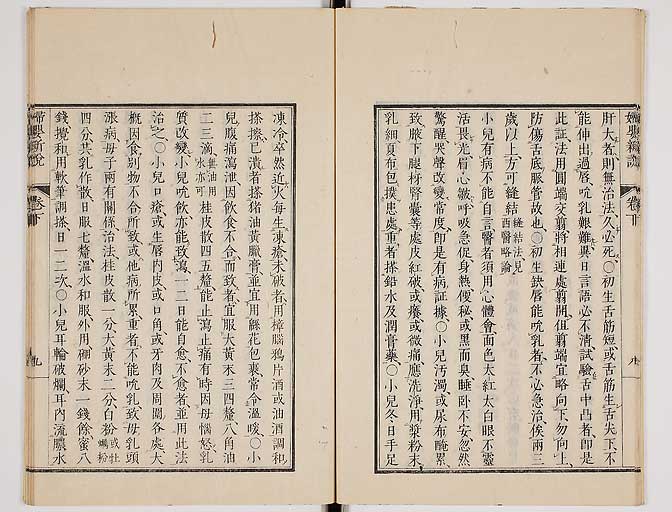 肝大者則無治法久必死〇初生舌筋短或舌筋生舌尖下不
能伸出過唇吮乳艱難異日言語必不清試驗舌中凸者即是
此証法用圓端交剪將相連處剪開但剪端宜略向下勿向上
防傷舌底脈管故也〇初生缺唇能吮乳者不必急治俟兩三
歲以上方可縫結縫結法見西醫略論
小兒有病不能自言醫者須用心體會面色太紅太白眼不靈
活畏光眉心皺呼吸急促身熱便秘或黑而臭睡卧不安忽然
驚醒哭聲改變常度即是有病証據〇小兒汚濁或尿布醃累
致腋下腿枒腎囊等處皮紅破或癢或微痛應洗淨用漿粉末
乳細夏布包撲患處重者搽鉛水及潤膏藥〇小兒冬日手足
婦嬰新說
卷下
凍冷卒然近火每生凍瘡未破者用樟腦鴉片酒或油酒調和
搽擦已潰者搽猪油黃臘膏並宜用綿花包裹常令溫暖〇小
兒腹痛瀉泄因飲食不合而致者宜服大黃末三四釐八角油
二三滴無油用水亦可桂皮散四五釐能止瀉止痛有時因母惱怒乳
質改變小兒吮飲亦能致瀉一二日能自愈不愈者並用此法
治之〇小兒口瘡或生唇内皮或口角或牙肉及周圍各處大
概因食别物不合所致或他病所累重者不能吮乳致母乳頭
漲病母子兩有關係治法桂皮散一分大黃末二分白粉或牡蠣粉
四分共乳作散日服七釐溫水和服外用硼砂末一錢餘蜜八
錢攪和用軟筆調搽日一二次〇小兒耳輪破爛耳内流膿水
婦嬰新說
卷下
九